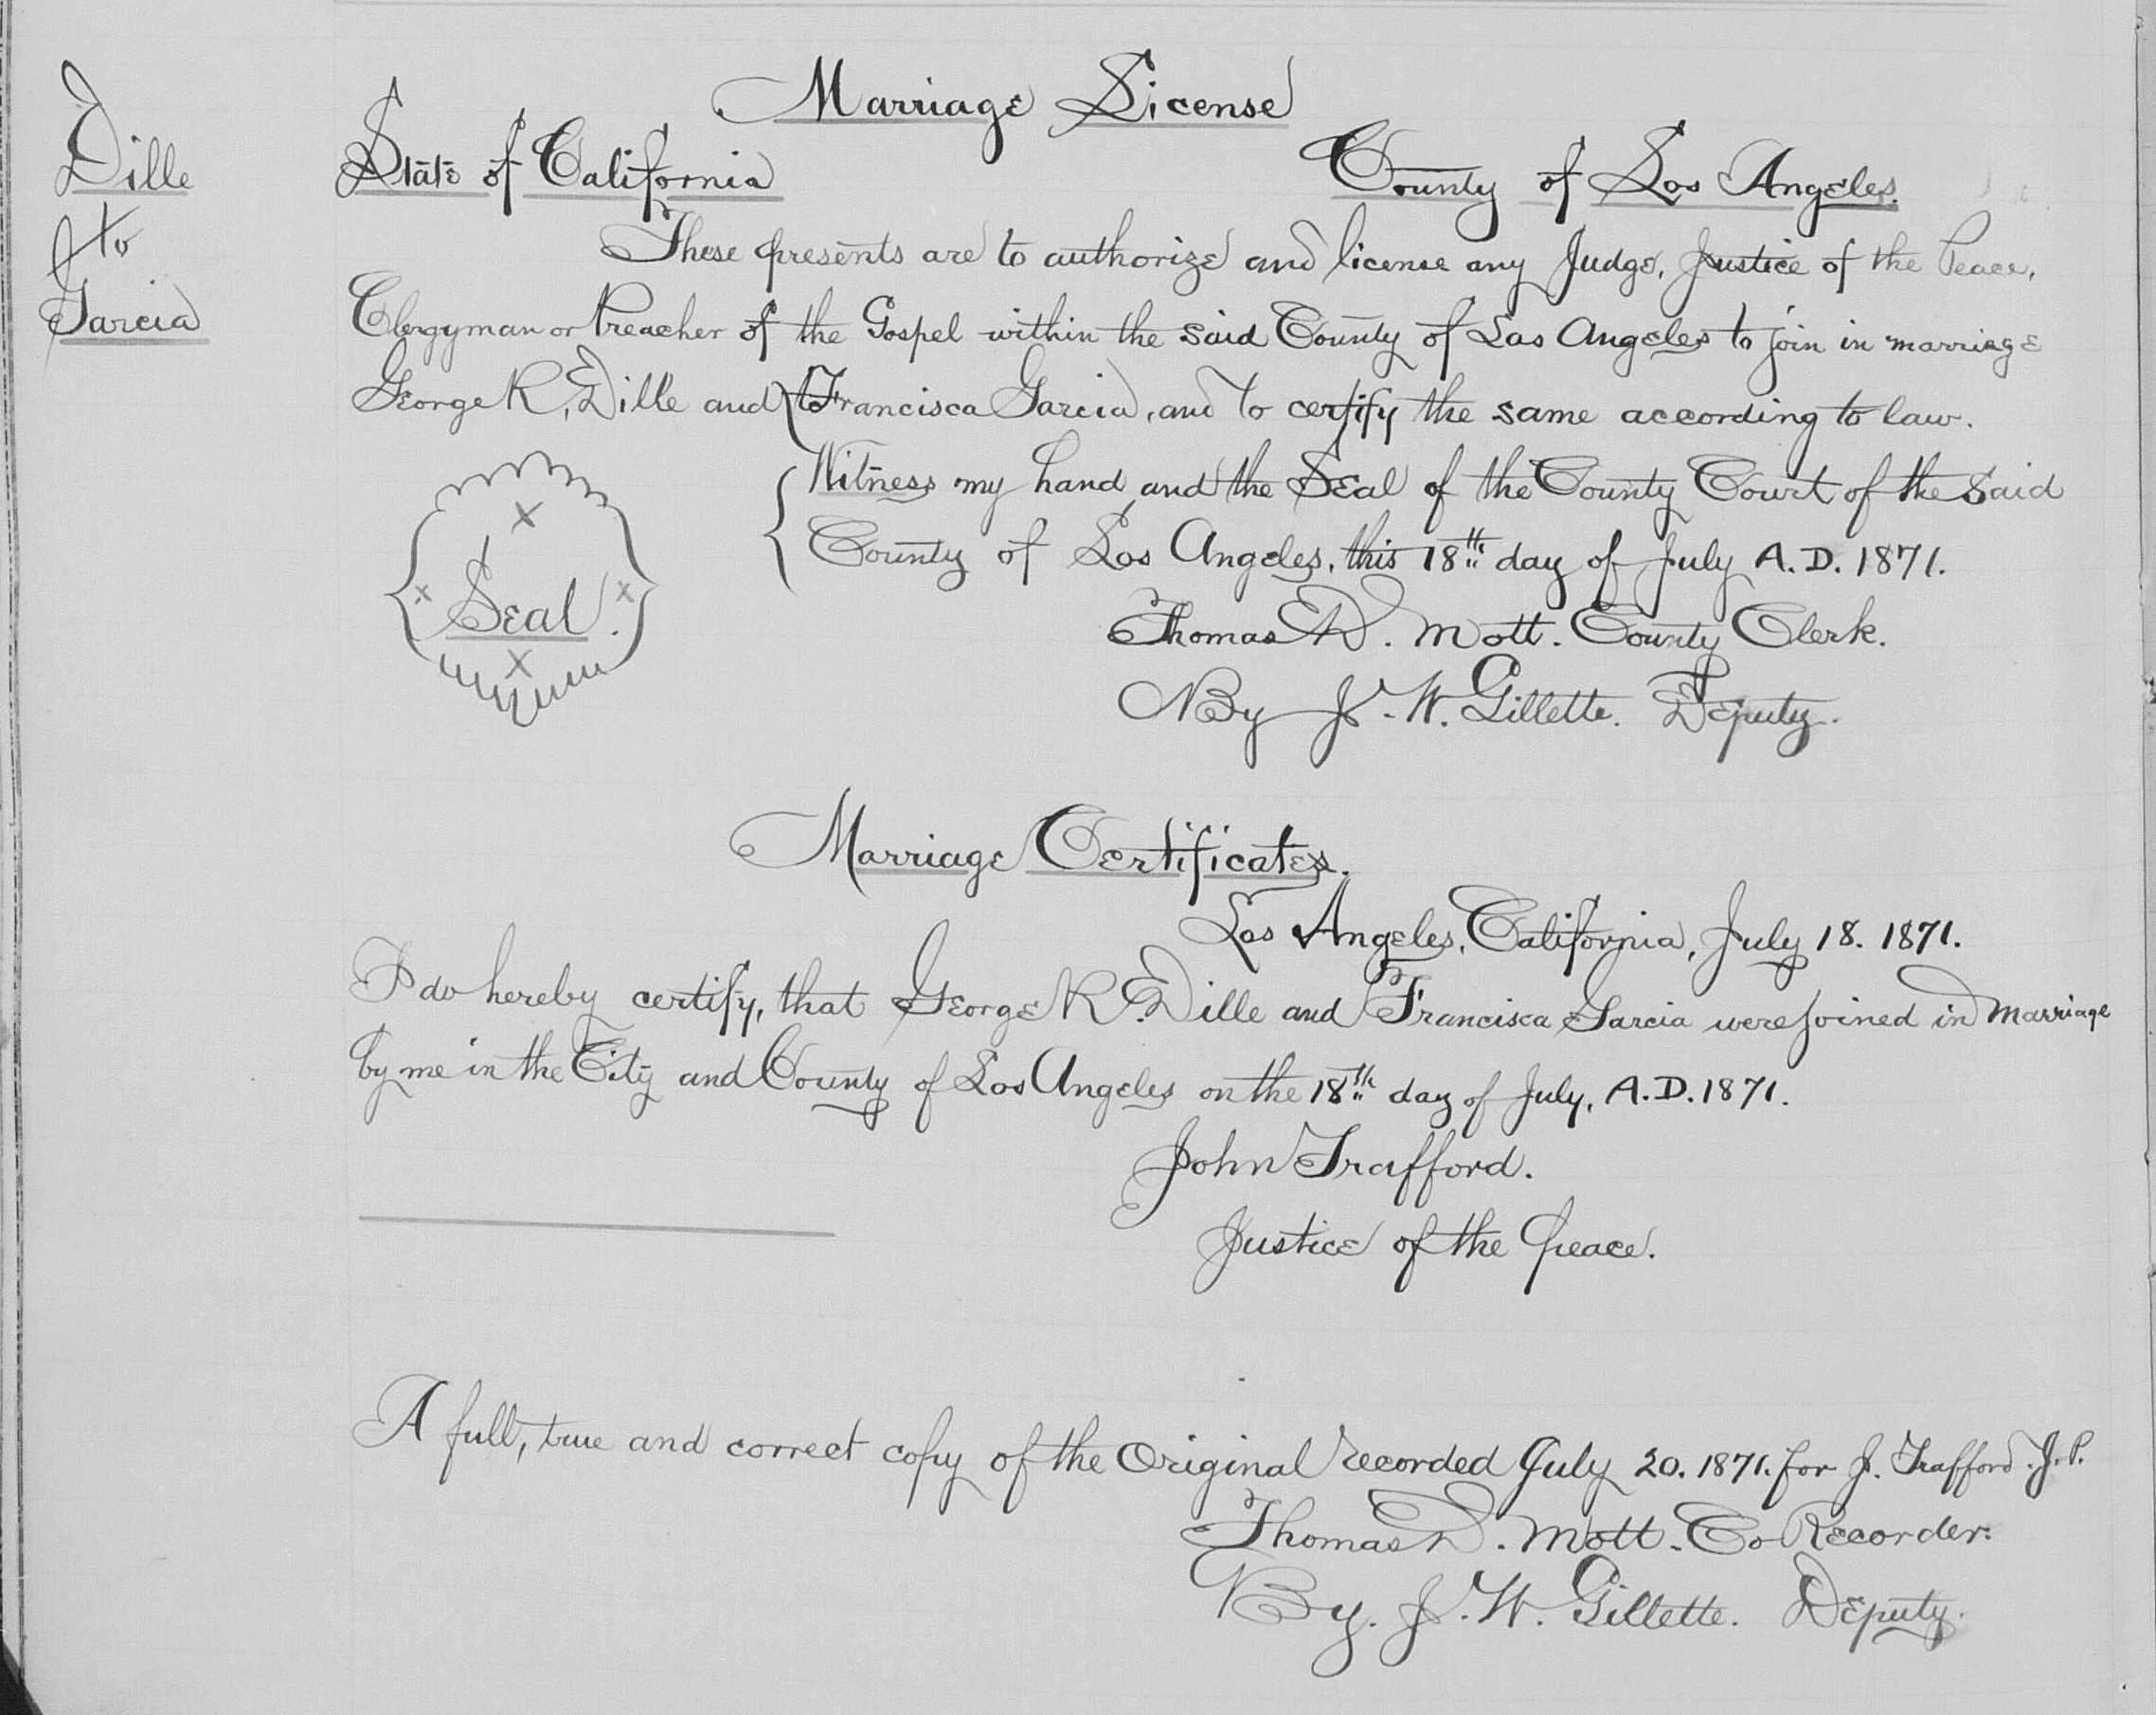 Marriage License
Dille
to
Garcia
State of California
County of Los Angeles.
These presents are to authorize and license any Judge, Justice of the Peace,
Clergyman or Preacher of the Gospel within the said County of Los Angeles to join in marriage
George R. Dille and to Francisca Garcia, and to certify the same according to law.
Seal.
Witness my hand and the Seal of the County Court of the said
County of Los Angeles, this 18th day of July A.D. 1871.
Thomas D. Mott. County Clerk.
By J. W. Gillette. Deputy.
Marriage Certificates.
Los Angeles, California, July 18. 1871.
I do hereby certify, that George R. Dille and Francisca Garcia were joined in Marriage
by me in the City and County of Los Angeles on the 18th day of July, A.D. 1871.
John Trafford.
Justice of the Peace.
A full, true and correct copy of the Original recorded July 20. 1871. for J. Trafford. J.P.
Thomas D. Mott. Co Recorder.
By. J. W. Gillette. Deputy.